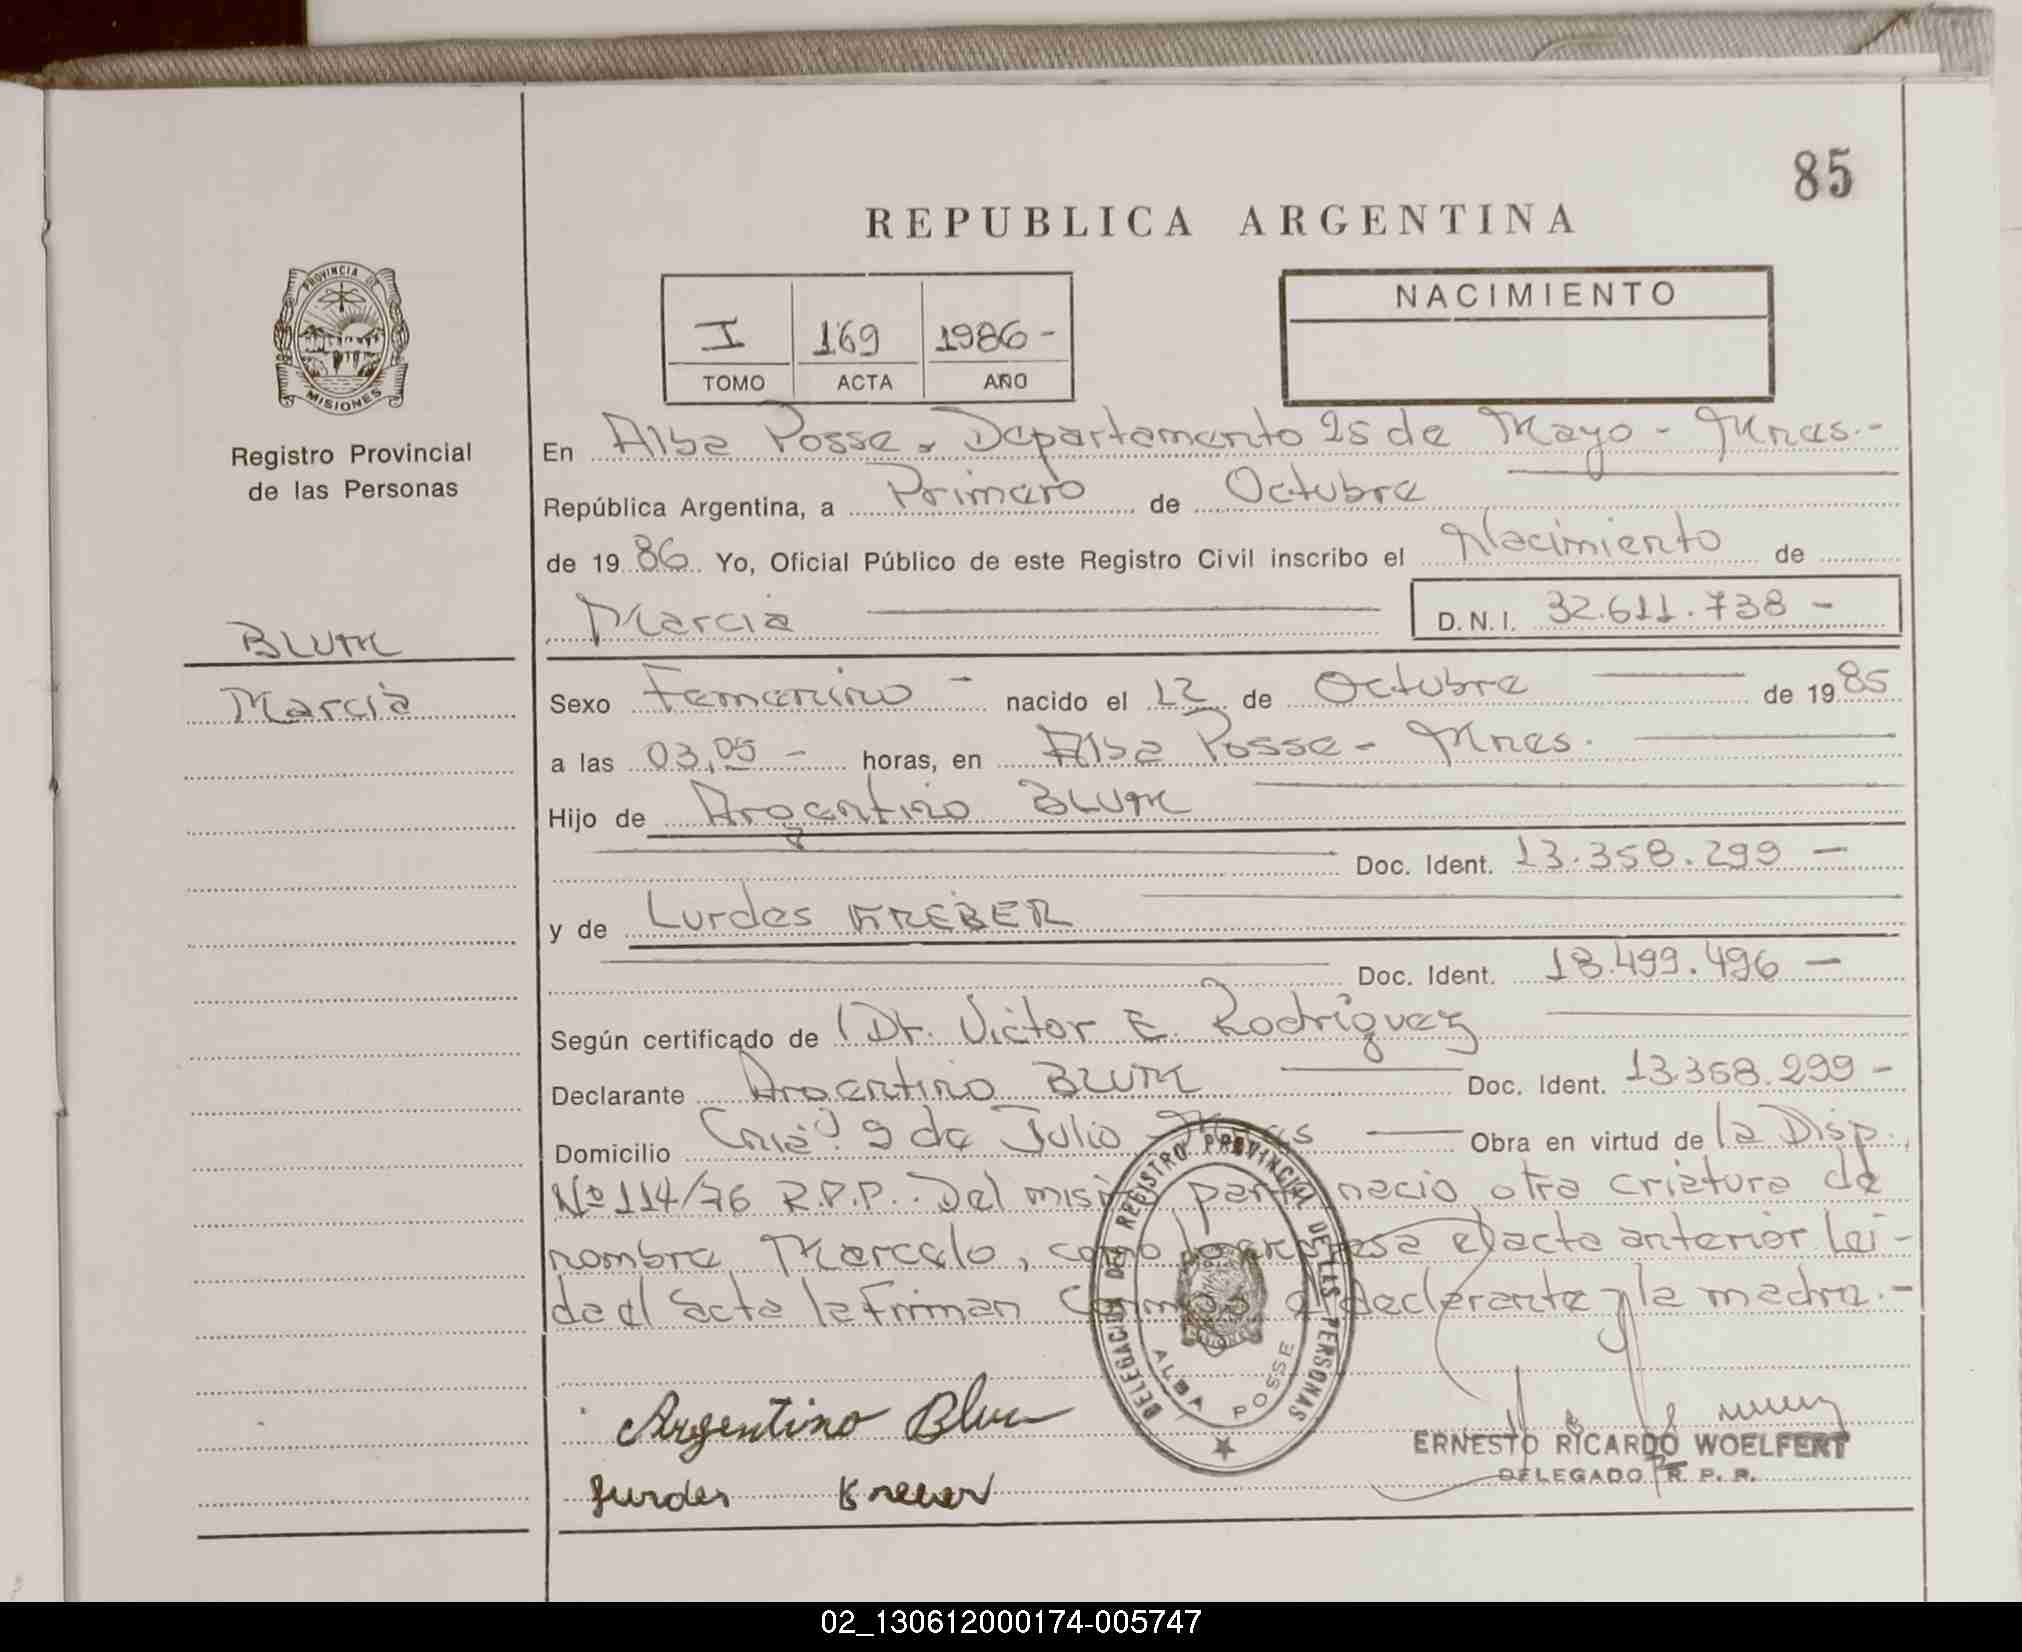 85
REPUBLICA ARGENTINA
PROVINCIA DE
MISIONES
Registro Provincial
de las Personas
I 169 1986-
TOMO ACTA AÑO
NACIMIENTO
En Alba Posse, Departamento 25 de Mayo - Mnes.-
República Argentina, a Primero de Octubre
de 19 86 Yo, Oficial Público de este Registro Civil inscribo el Nacimiento de
Marcia D.N.I. 32.611.738 -
BLUM
Marcia
Sexo Femenino - nacido el 12 de Octubre de 19 85
a las 03,05 - horas, en Alba Posse - Mnes.
Hijo de Argentino BLUM
Doc. Ident. 13.358.299 -
y de Lurdes KREBER
Doc. Ident. 18.499.496 -
Según certificado de Dr. Victor E. Rodriguez
Declarante Argentino BLUM Doc. Ident. 13.358.299 -
Domicilio 9 de Julio - Mnes Obra en virtud de la Disp.
Nº 114/76 R.P.P.. Del mismo parto nacio otra criatura de
nombre Marcelo, como lo expresa el acta anterior Lei-
da el acta la Firman Conmigo el declarante y la madre.-
DELEGACION DEL REGISTRO PROVINCIAL DE LAS PERSONAS
ALBA POSSE
Argentino Blum
Lurdes Kreber
ERNESTO RICARDO WOELFERT
DELEGADO R. P. P.
02_130612000174-005747